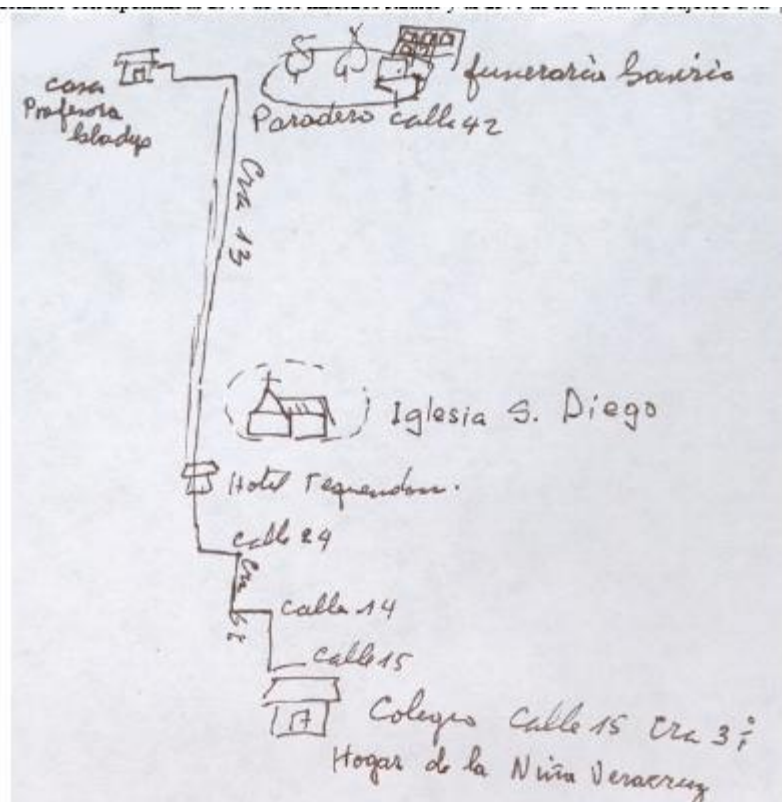 casa
Profesora
Gladys
funeraria Gaviria
Paradero calle 42
Cra 13
Iglesia S. Diego
Hotel Tequendam.
calle 24
Cra
calle 14
calle 15
Colegio Calle 15 Cra 3ª
Hogar de la Niña Veracruz